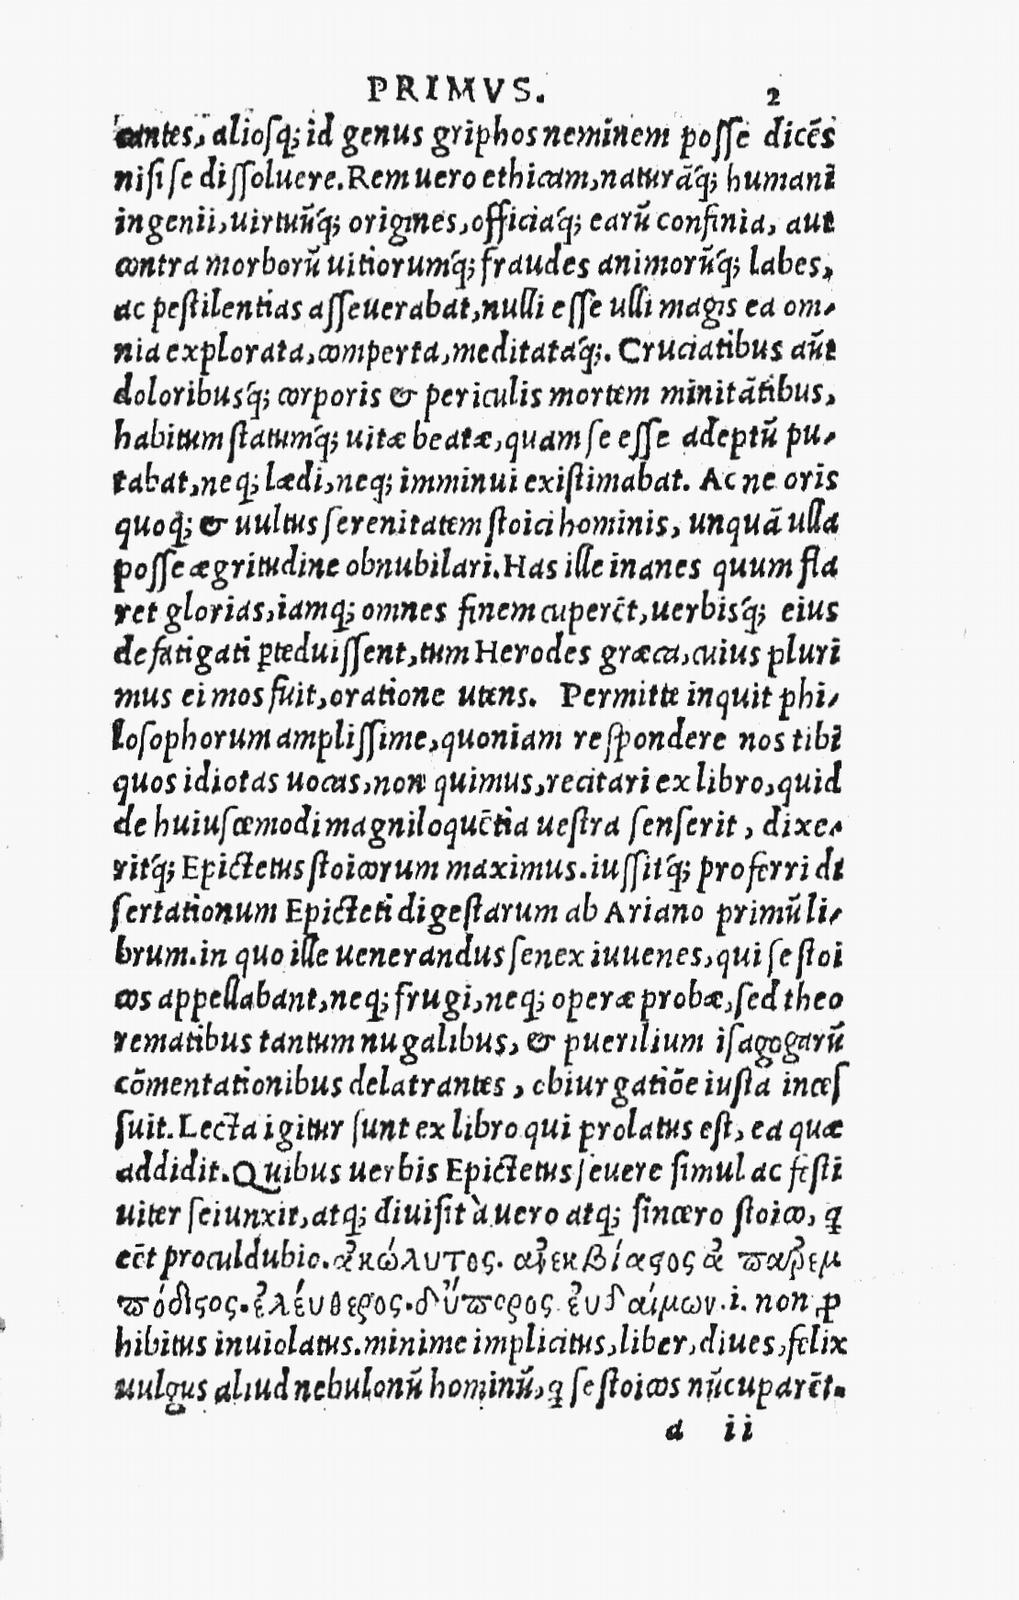 PRIMVS. 2
cantes, aliosq; id genus griphos neminem posse dicēs
nisi se dissoluere. Rem uero ethicam, naturāq́; humani
ingenii, uirtutūq́; origines, officiaq́; earū confinia, aut
contra morborū uitiorumq́; fraudes animorūq́; labes,
ac pestilentias asseuerabat, nulli esse ulli magis ea om-
nia explorata, comperta, meditataq́;. Cruciatibus aūt
doloribusq́; corporis & periculis mortem minitātibus,
habitum statumq́; uitæ beatæ, quam se esse adeptū pu-
tabat, neq; lædi, neq; imminui existimabat. Ac ne oris
quoq́; & uultus serenitatem stoici hominis, unquā ulla
posse ægritudine obnubilari. Has ille inanes quum fla
ret glorias, iamq; omnes finem cuperēt, uerbisq́; eius
defatigati ꝑteduissent, tum Herodes græca, cuius pluri
mus ei mos fuit, oratione utens. Permitte inquit phi-
losophorum amplissime, quoniam respondere nos tibi
quos idiotas uocas, non quimus, recitari ex libro, quid
de huiuscemodi magniloquētia uestra senserit, dixe-
ritq́; Epictetus stoicorum maximus. iussitq́; proferri di
sertationum Epicteti digestarum ab Ariano primū li-
brum. in quo ille uenerandus senex iuuenes, qui se stoi
cos appellabant, neq; frugi, neq; operæ probæ, sed theo
rematibus tantum nugalibus, & puerilium isagogarū
cōmentationibus delatrantes, obiurgatiōe iusta inces
suit. Lecta igitur sunt ex libro qui prolatus est, ea quæ
addidit. Quibus uerbis Epictetus seuere simul ac festi
uiter seiunxit, atq; diuisit à uero atq; sincero stoico, q
eēt proculdubio. ἀκώλυτος. ἀνεκβίαςος ἀ παρεμ
πόδιςος. ἐλέυθερος. ἔυπορος ἐυδαίμων. i. non ꝓ
hibitus inuiolatus. minime implicitus, liber, diues, felix
uulgus aliud nebulonū hominū, q se stoicos nūcuparēt.
a ii